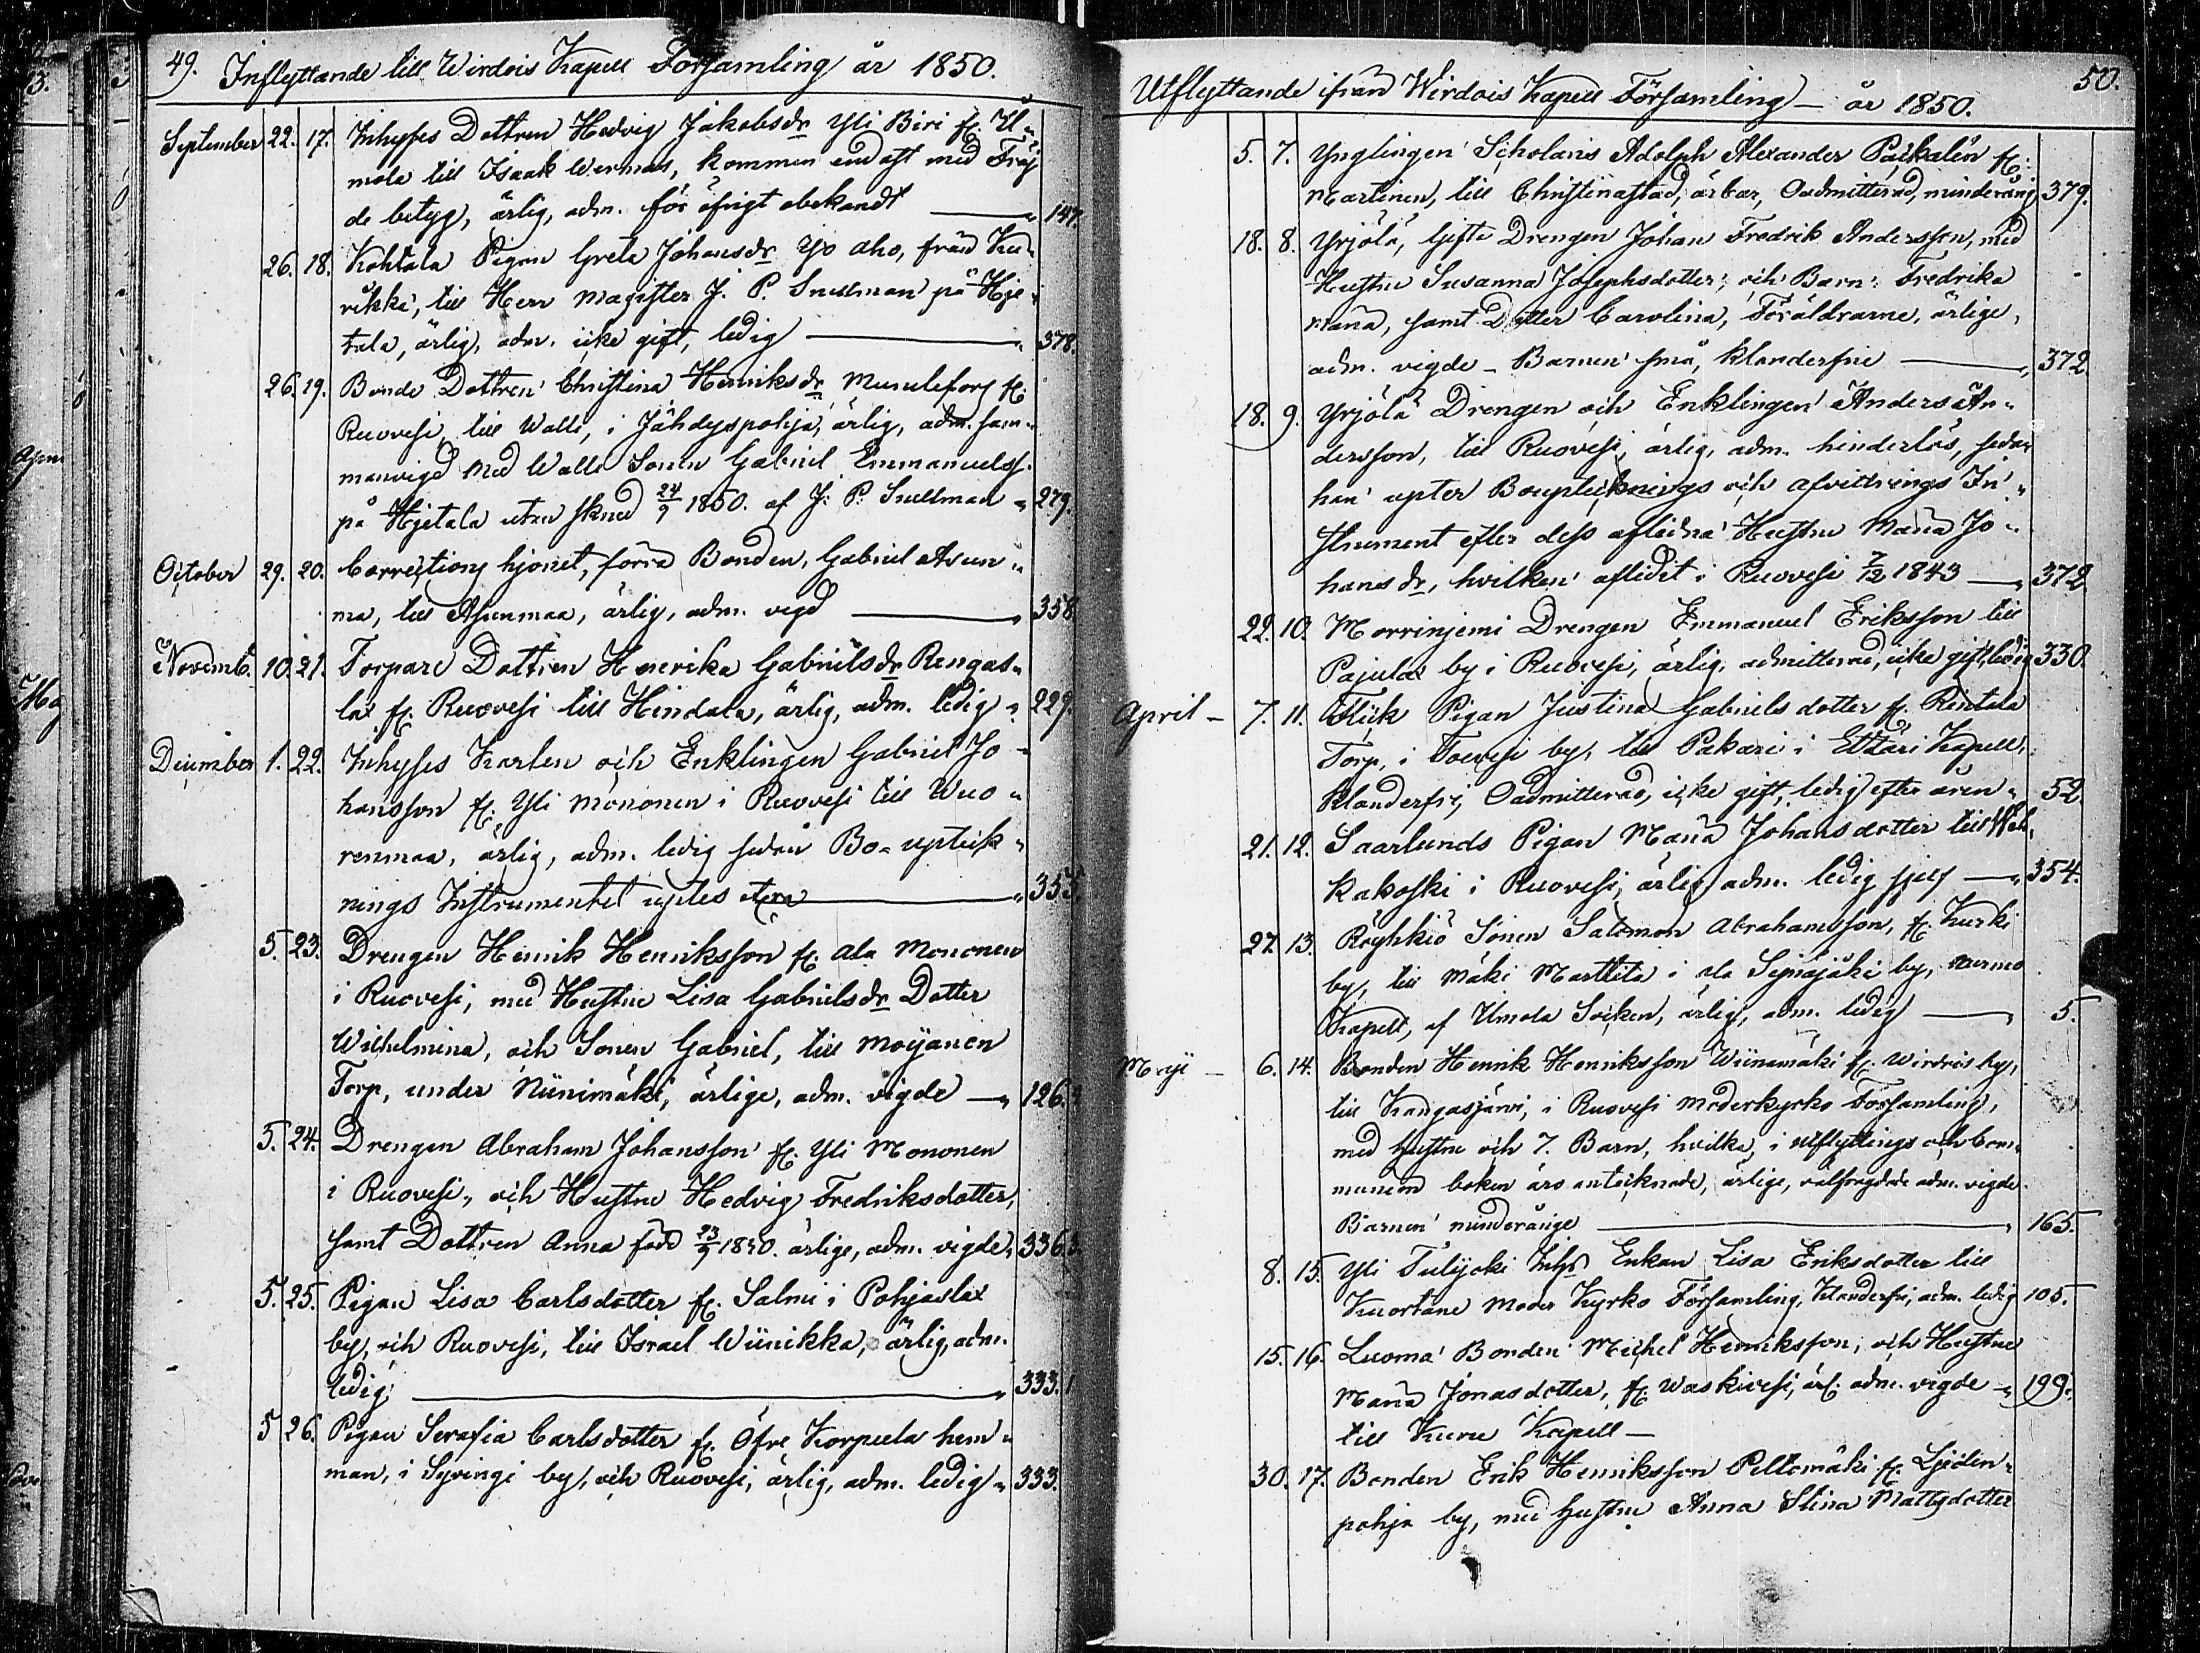 49. Inflyttande till Wirdois Kapell Församling år 1850.
September 22. 17. Inhyses Dottren Hedvig Jakobsdr Yli Biri fr. Ul-
mola till Isaak Wermas, kommen endast med Frej
de betyg, ärlig, adm. för öfrigt obekandt 147.
26. 18. Kohtala Pigan Greta Johansdr Yjö aho, från Ku-
rikka, till Herr Magister J. P. Snellman på Hje-
tala, ärlig, adm. icke gift, ledig 378.
26. 19. Bonde Dottren Christina Henriksdr fr.
Ruovesi till Walli, i Jähdyspohja, ärlig, adm. sam-
manvigd med Walli Sonen Gabriel Emmanuelss.
på Hjetala 24/9 1850. af J. P. Snellman 279.
October 29. 20. Corrections hjonet, förra Bonden, Gabriel Asun-
ma, till Asunmaa, ärlig, adm. vigd 358
Novemb. 10. 21. Torpare Dottren Henrika Gabrielsdr Rengas-
lax fr. Ruovesi till Hindala, ärlig, adm. ledig 229.
December 1. 22. Inhyses Karlen och Enklingen Gabriel Jo-
hansson fr. Yli Mononen i Ruovesi till Wuo-
renmaa, ärlig, adm. ledig sedan Bo-uptek-
nings Instrumentet uptes 353.
5. 23. Drengen Henrik Henriksson fr. Ala Mononen
i Ruovesi, med Hustru Lisa Gabrielsdr Dotter
Wilhelmina, och Sonen Gabriel, till Moijanen
Torp, under Niinimäki, ärlige, adm. vigde 126.
5. 24. Drengen Abraham Johansson fr. Yli Mononen
i Ruovesi, och Hustru Hedvig Fredriksdotter,
samt Dottren Anna född 23/9 1850. ärlige, adm. vigde 336.
5. 25. Pigan Lisa Carlsdotter fr. Salmi i Pohjaslax
by, och Ruovesi, till Israel Wiinikka, ärlig, adm.
ledig 333.
5 26. Pigan Serafia Carlsdotter fr. Öfre Korpula hem-
man, i Syvingi by, och Ruovesi, ärlig, adm. ledig 333.
Utflyttande ifrån Wirdois Kapell Församling – år 1850. 50.
5. 7. Ynglingen Scholaris Adolph Alexander Paikalén fr.
Martinen, till Christinastad, ärbar, Oadmitterad, minderårig 379.
18. 8. Yrjölä, Gifte Drengen Johan Fredrik Andersson, med
Hustru Susanna Josephsdotter, och Barn: Fredrika
Maria, samt Dotter Carolina, Föräldrarne, ärlige,
adm. vigde – Barnen små, klanderfrie 372.
18. 9. Yrjölä Drengen och Enklingen Anders An-
dersson, till Ruovesi, ärlig, adm. hinderlös, sedan
han upter Boupteknings och afvittrings In-
strument efter dess aflidna Hustru Maria Jo-
hansdr, hvilken aflidit i Ruovesi 7/12 1843 372
22. 10. Morrinjemi Drengen Emmanuel Eriksson till
Pajulax by i Ruovesi, ärlig, admitterad, icke gift, ledig 330.
April – 7. 11. Flick Pigan Justina Gabriels dotter fr. Rintala
Torp, i Toivesi by, till Pakari i Etzäri Kapell,
klanderfri, Oadmitterad, icke gift, ledig efter åren 52
21. 12. Saarlunds Pigan Maria Johansdotter till
kakoski i Ruovesi, ärlig adm. ledig sjelf 354.
27. 13. Röyhkiö Sonen Salomon Abrahamsson, fr. Kurki
by, till Mäki Marttila i ala Seinäjoki by, Nurmo
Kapell, af Ilmola Socken, ärlig, adm. ledig 5.
Maji – 6. 14. Bonden Henrik Henriksson Wiinamäki fr. Wirdois by,
till Kangasjärvi, i Ruovesi Moderkyrko Församling,
med Hustru och 7. Barn, hvilka, i utflyttnings och Com-
munion boken äro antecknade, ärlige, välfrägdade adm. vigde.
Barnen minderårige 165.
8. 15. Yli Tulijoki Inhs Enkan Lisa Eriksdotter till
Kuortane Moder Kyrko Församling, klanderfri, adm. ledig 105.
15. 16. Luoma Bonden Michel Henriksson, och Hustru
Maria Jonasdotter, fr. Waskivesi, ärl. adm. vigde 199.
till Kuru Kapell –
30. 17. Bonden Erik Henriksson Peltomäki fr. Ljeden-
pohja by, med Hustru Anna Stina Mattsdotter